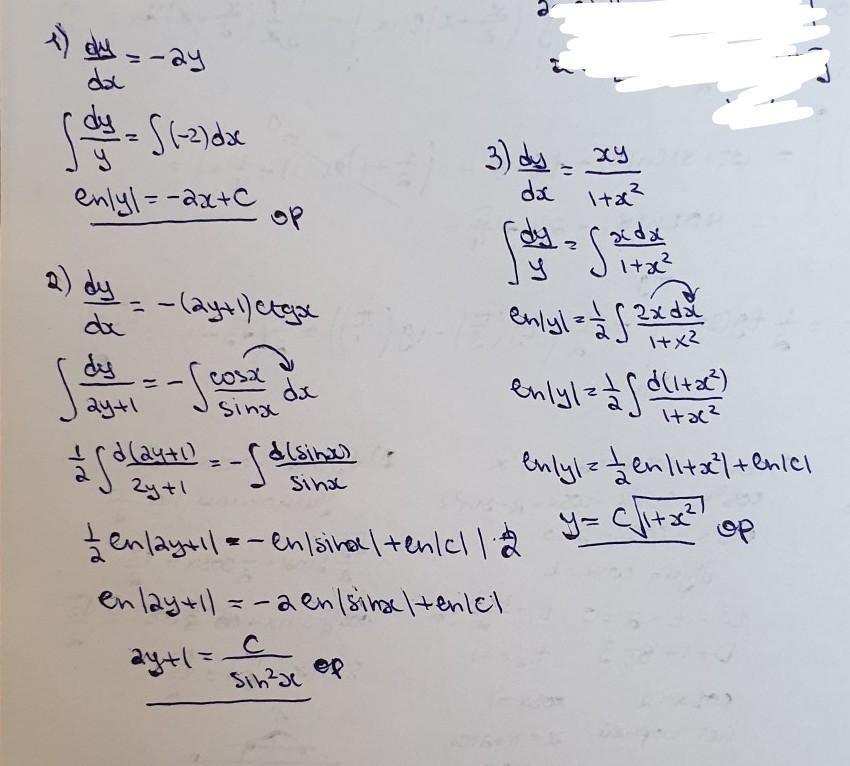 1) dy/dx = -2y
∫ dy/y = ∫(-2)dx
ln|y| = -2x+C op
2) dy/dx = -(2y+1)ctgx
∫ dy/2y+1 = -∫ cosx/sinx dx
1/2 ∫ d(2y+1)/2y+1 = -∫ d(sinx)/sinx
1/2 ln|2y+1| = -ln|sinx|+ln|c| |·2
ln|2y+1| = -2ln|sinx|+ln|c|
2y+1 = C/sin²x op
3) dy/dx = xy/1+x²
∫ dy/y = ∫ xdx/1+x²
ln|y| = 1/2 ∫ 2xdx/1+x²
ln|y| = 1/2 ∫ d(1+x²)/1+x²
ln|y| = 1/2 ln|1+x²|+ln|c|
y = C√1+x² op